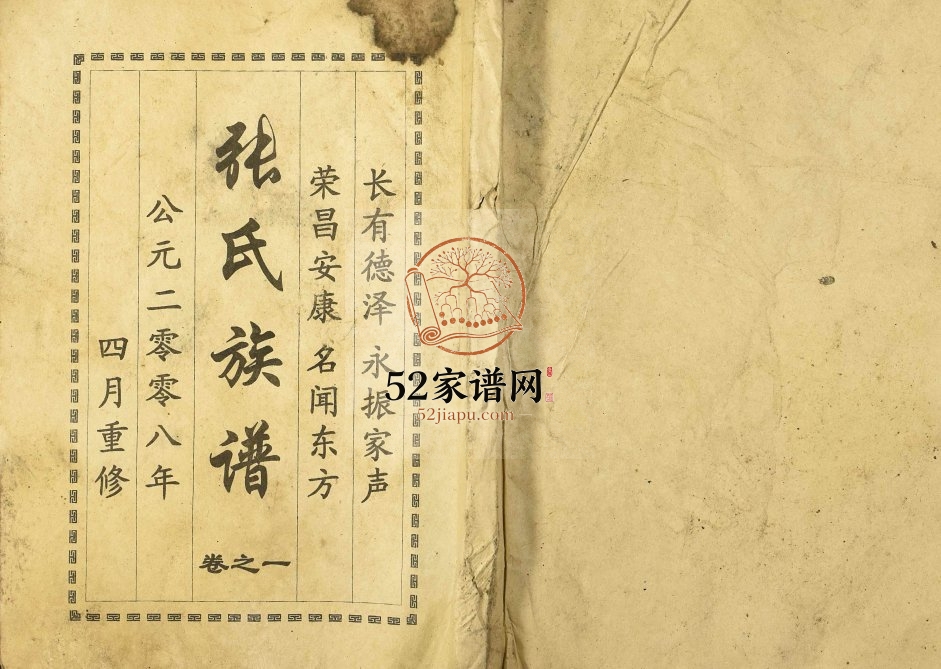 长有德泽 永振家声
荣昌安康 名闻东方
张氏族谱
卷之一
公元二零零八年
四月重修
52家谱网
52jiapu.com